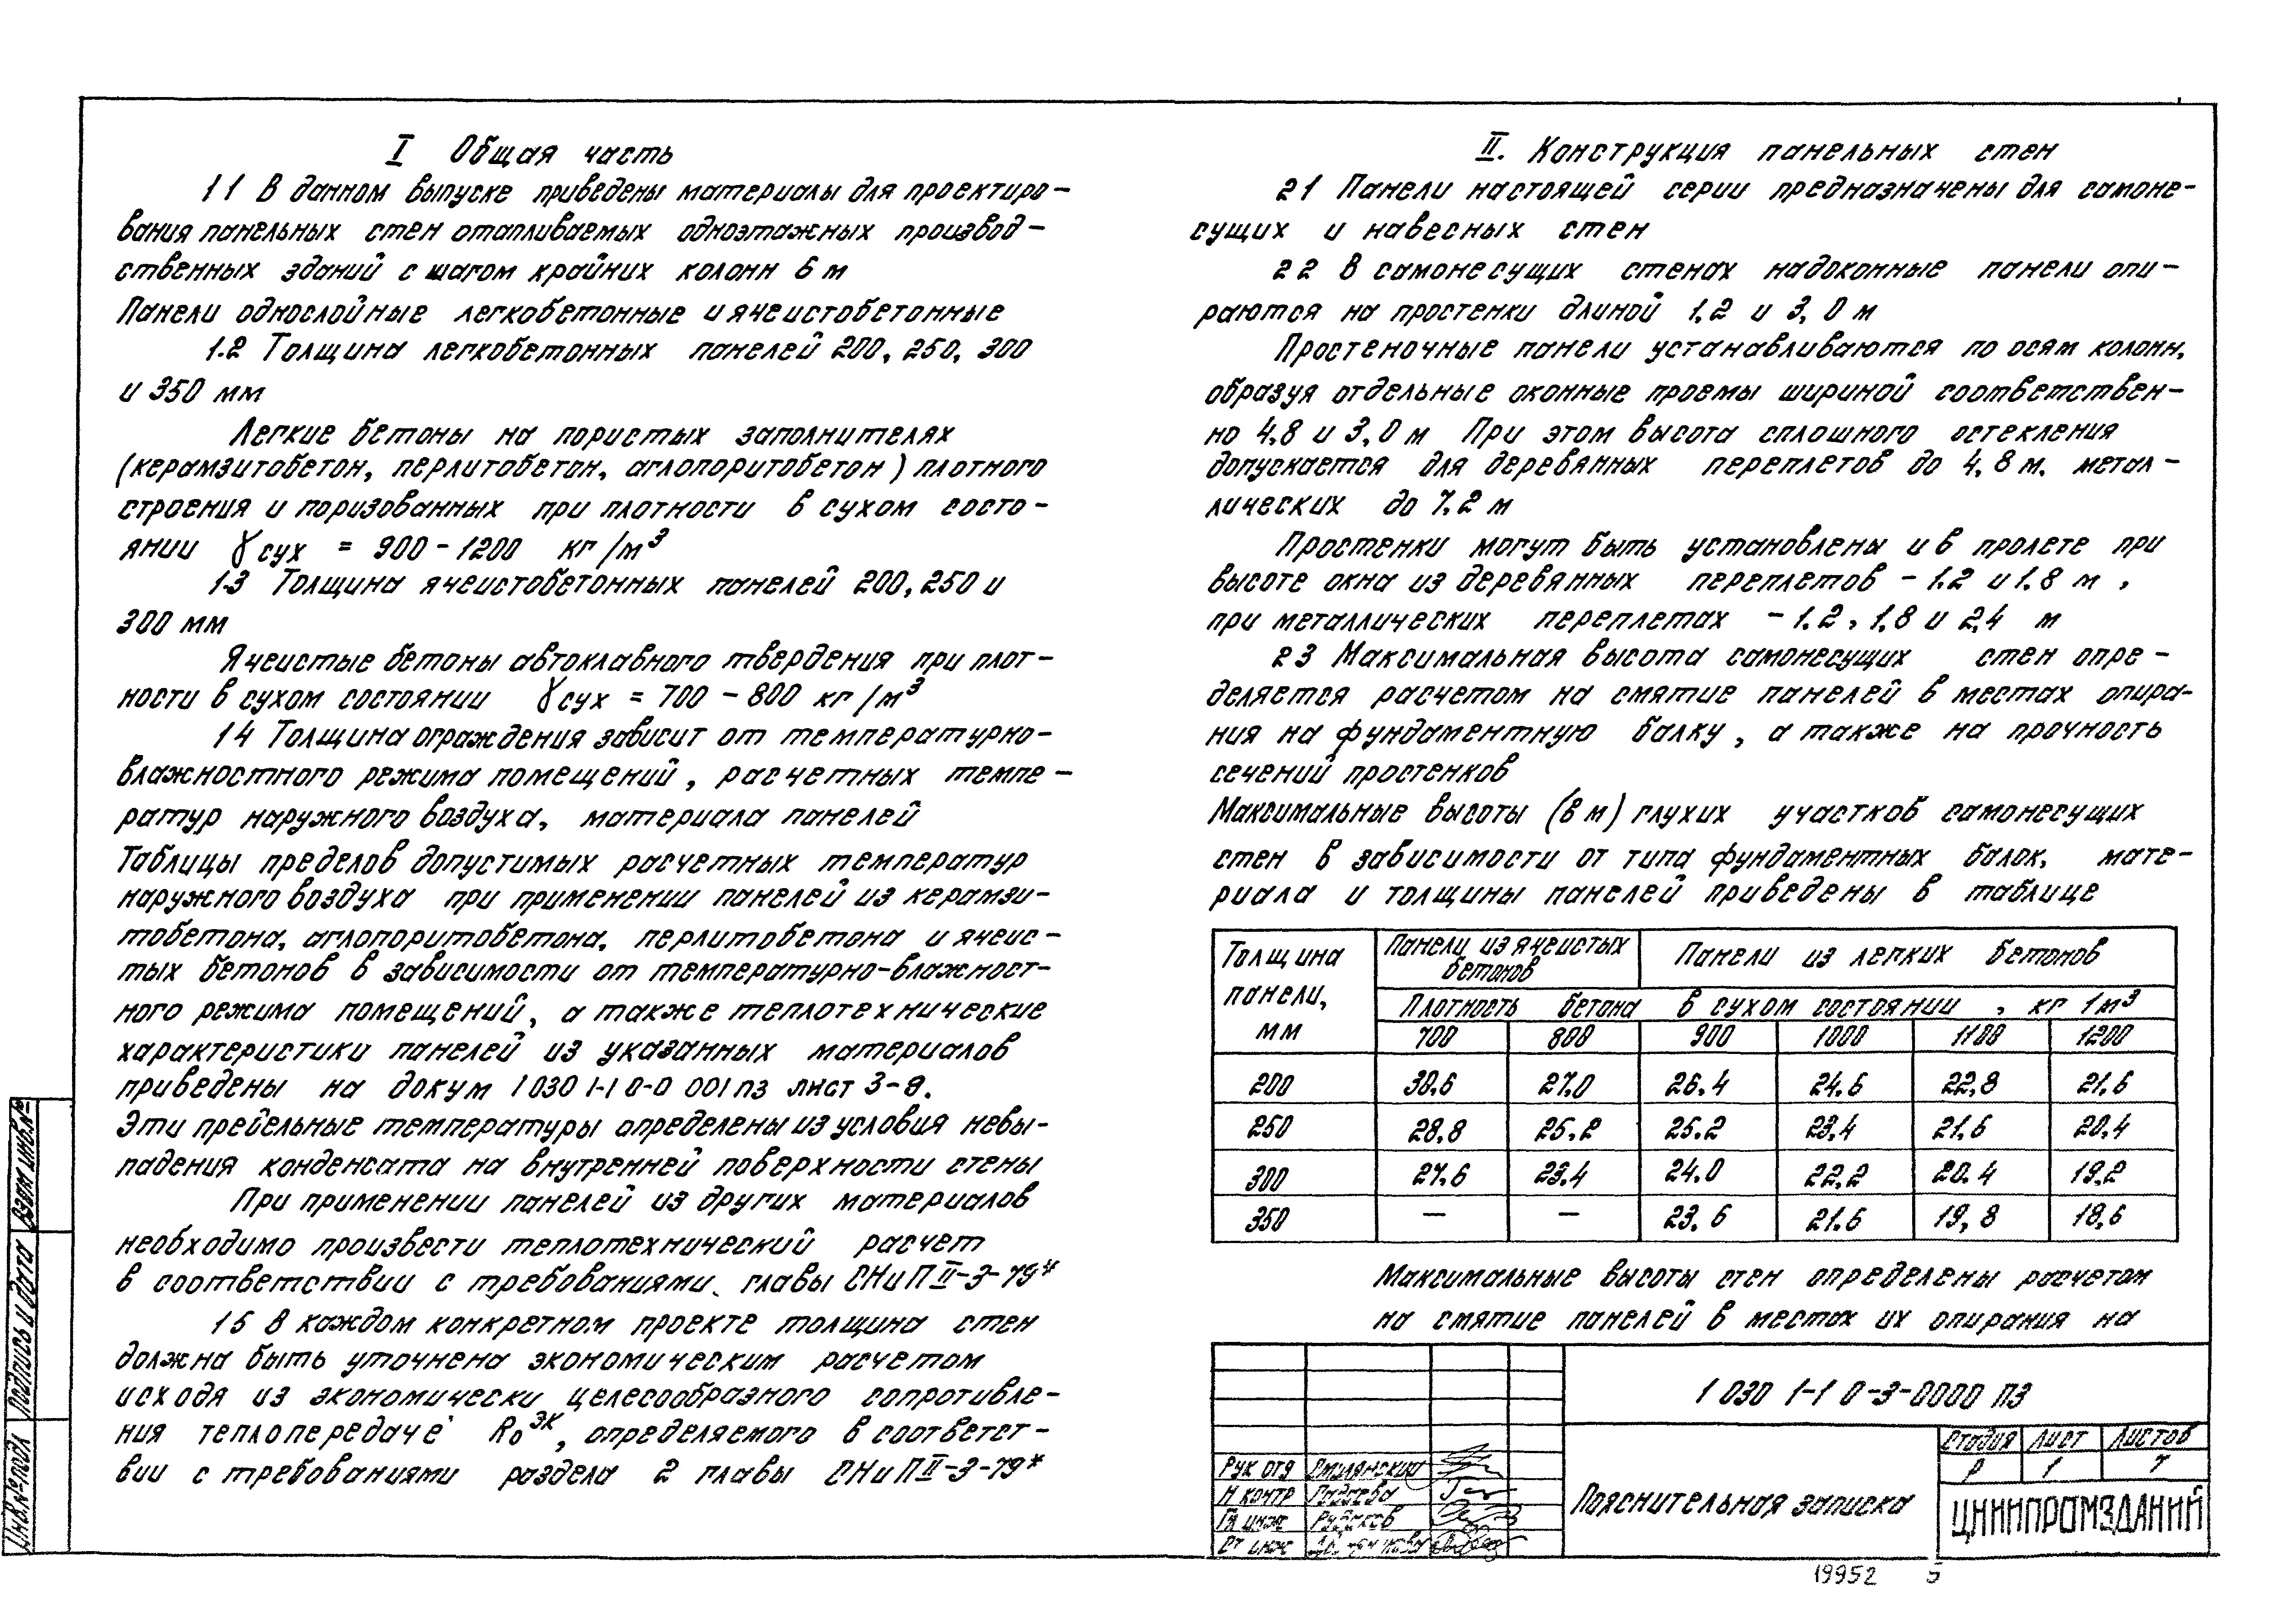 I Общая часть
1 1 В данном выпуске приведены материалы для проектиро-
вания панельных стен отапливаемых одноэтажных производ-
ственных зданий с шагом крайних колонн 6 м
Панели однослойные легкобетонные и ячеистобетонные
1.2 Толщина легкобетонных панелей 200, 250, 300
и 350 мм
Легкие бетоны на пористых заполнителях
(керамзитобетон, перлитобетон, аглопоритобетон) плотного
строения и поризованных при плотности в сухом состо-
янии γсух = 900-1200 кг/м³
1.3 Толщина ячеистобетонных панелей 200, 250 и
300 мм
Ячеистые бетоны автоклавного твердения при плот-
ности в сухом состоянии γсух = 700-800 кг/м³
1 4 Толщина ограждения зависит от температурно-
влажностного режима помещений, расчетных темпе-
ратур наружного воздуха, материала панелей
Таблицы пределов допустимых расчетных температур
наружного воздуха при применении панелей из керамзи-
тобетона, аглопоритобетона, перлитобетона и ячеис-
тых бетонов в зависимости от температурно-влажност-
ного режима помещений, а также теплотехнические
характеристики панелей из указанных материалов
приведены на докум 1 030 1-1 0-0 001 пз лист 3-8.
Эти предельные температуры определены из условия невы-
падения конденсата на внутренней поверхности стены
При применении панелей из других материалов
необходимо произвести теплотехнический расчет
в соответствии с требованиями главы СНиП II-3-79*
1 5 В каждом конкретном проекте толщина стен
должна быть уточнена экономическим расчетом
исходя из экономически целесообразного сопротивле-
ния теплопередаче R₀ᵉᵏ, определяемого в соответст-
вии с требованиями раздела 2 главы СНиП II-3-79*
II. Конструкция панельных стен
2 1 Панели настоящей серии предназначены для самоне-
сущих и навесных стен
2 2 В самонесущих стенах надоконные панели опи-
раются на простенки длиной 1,2 и 3,0 м
Простеночные панели устанавливаются по осям колонн,
образуя отдельные оконные проемы шириной соответствен-
но 4,8 и 3,0 м При этом высота сплошного остекления
допускается для деревянных переплетов до 4,8 м, метал-
лических до 7,2 м
Простенки могут быть установлены и в пролете при
высоте окна из деревянных переплетов - 1,2 и 1,8 м,
при металлических переплетах - 1,2, 1,8 и 2,4 м
2 3 Максимальная высота самонесущих стен опре-
деляется расчетом на смятие панелей в местах опира-
ния на фундаментную балку, а также на прочность
сечений простенков
Максимальные высоты (в м) глухих участков самонесущих
стен в зависимости от типа фундаментных балок, мате-
риала и толщины панелей приведены в таблице
Толщина панели, мм Панели из ячеистых бетонов Панели из легких бетонов
Плотность бетона в сухом состоянии, кг 1м³
700 800 900 1000 1100 1200
200 30.6 27.0 26.4 24.6 22,8 21.6
250 28,8 25.2 25.2 23,4 21.6 20,4
300 27.6 23.4 24.0 22.2 20.4 19,2
350 — — 23.6 21.6 19,8 18,6
Максимальные высоты стен определены расчетом
на смятие панелей в местах их опирания на
1 030 1-1 0-3-0000 ПЗ
Рук отд Смилянский
Н контр
Гл инж Рудаков
Ст инж
Пояснительная записка
Стадия Лист Листов
Р 1 7
ЦНИИПРОМЗДАНИЙ
19952 5
Инв.№подл Подпись и дата Взам инв.№